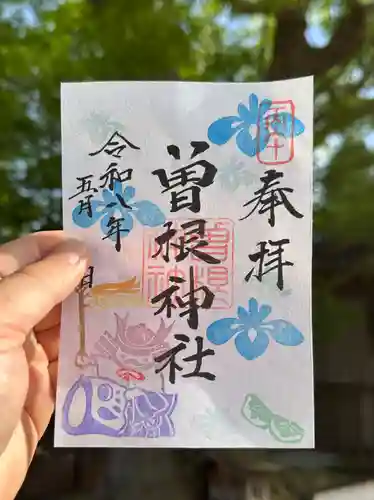 奉拝
曽根神社
令和八年
五月